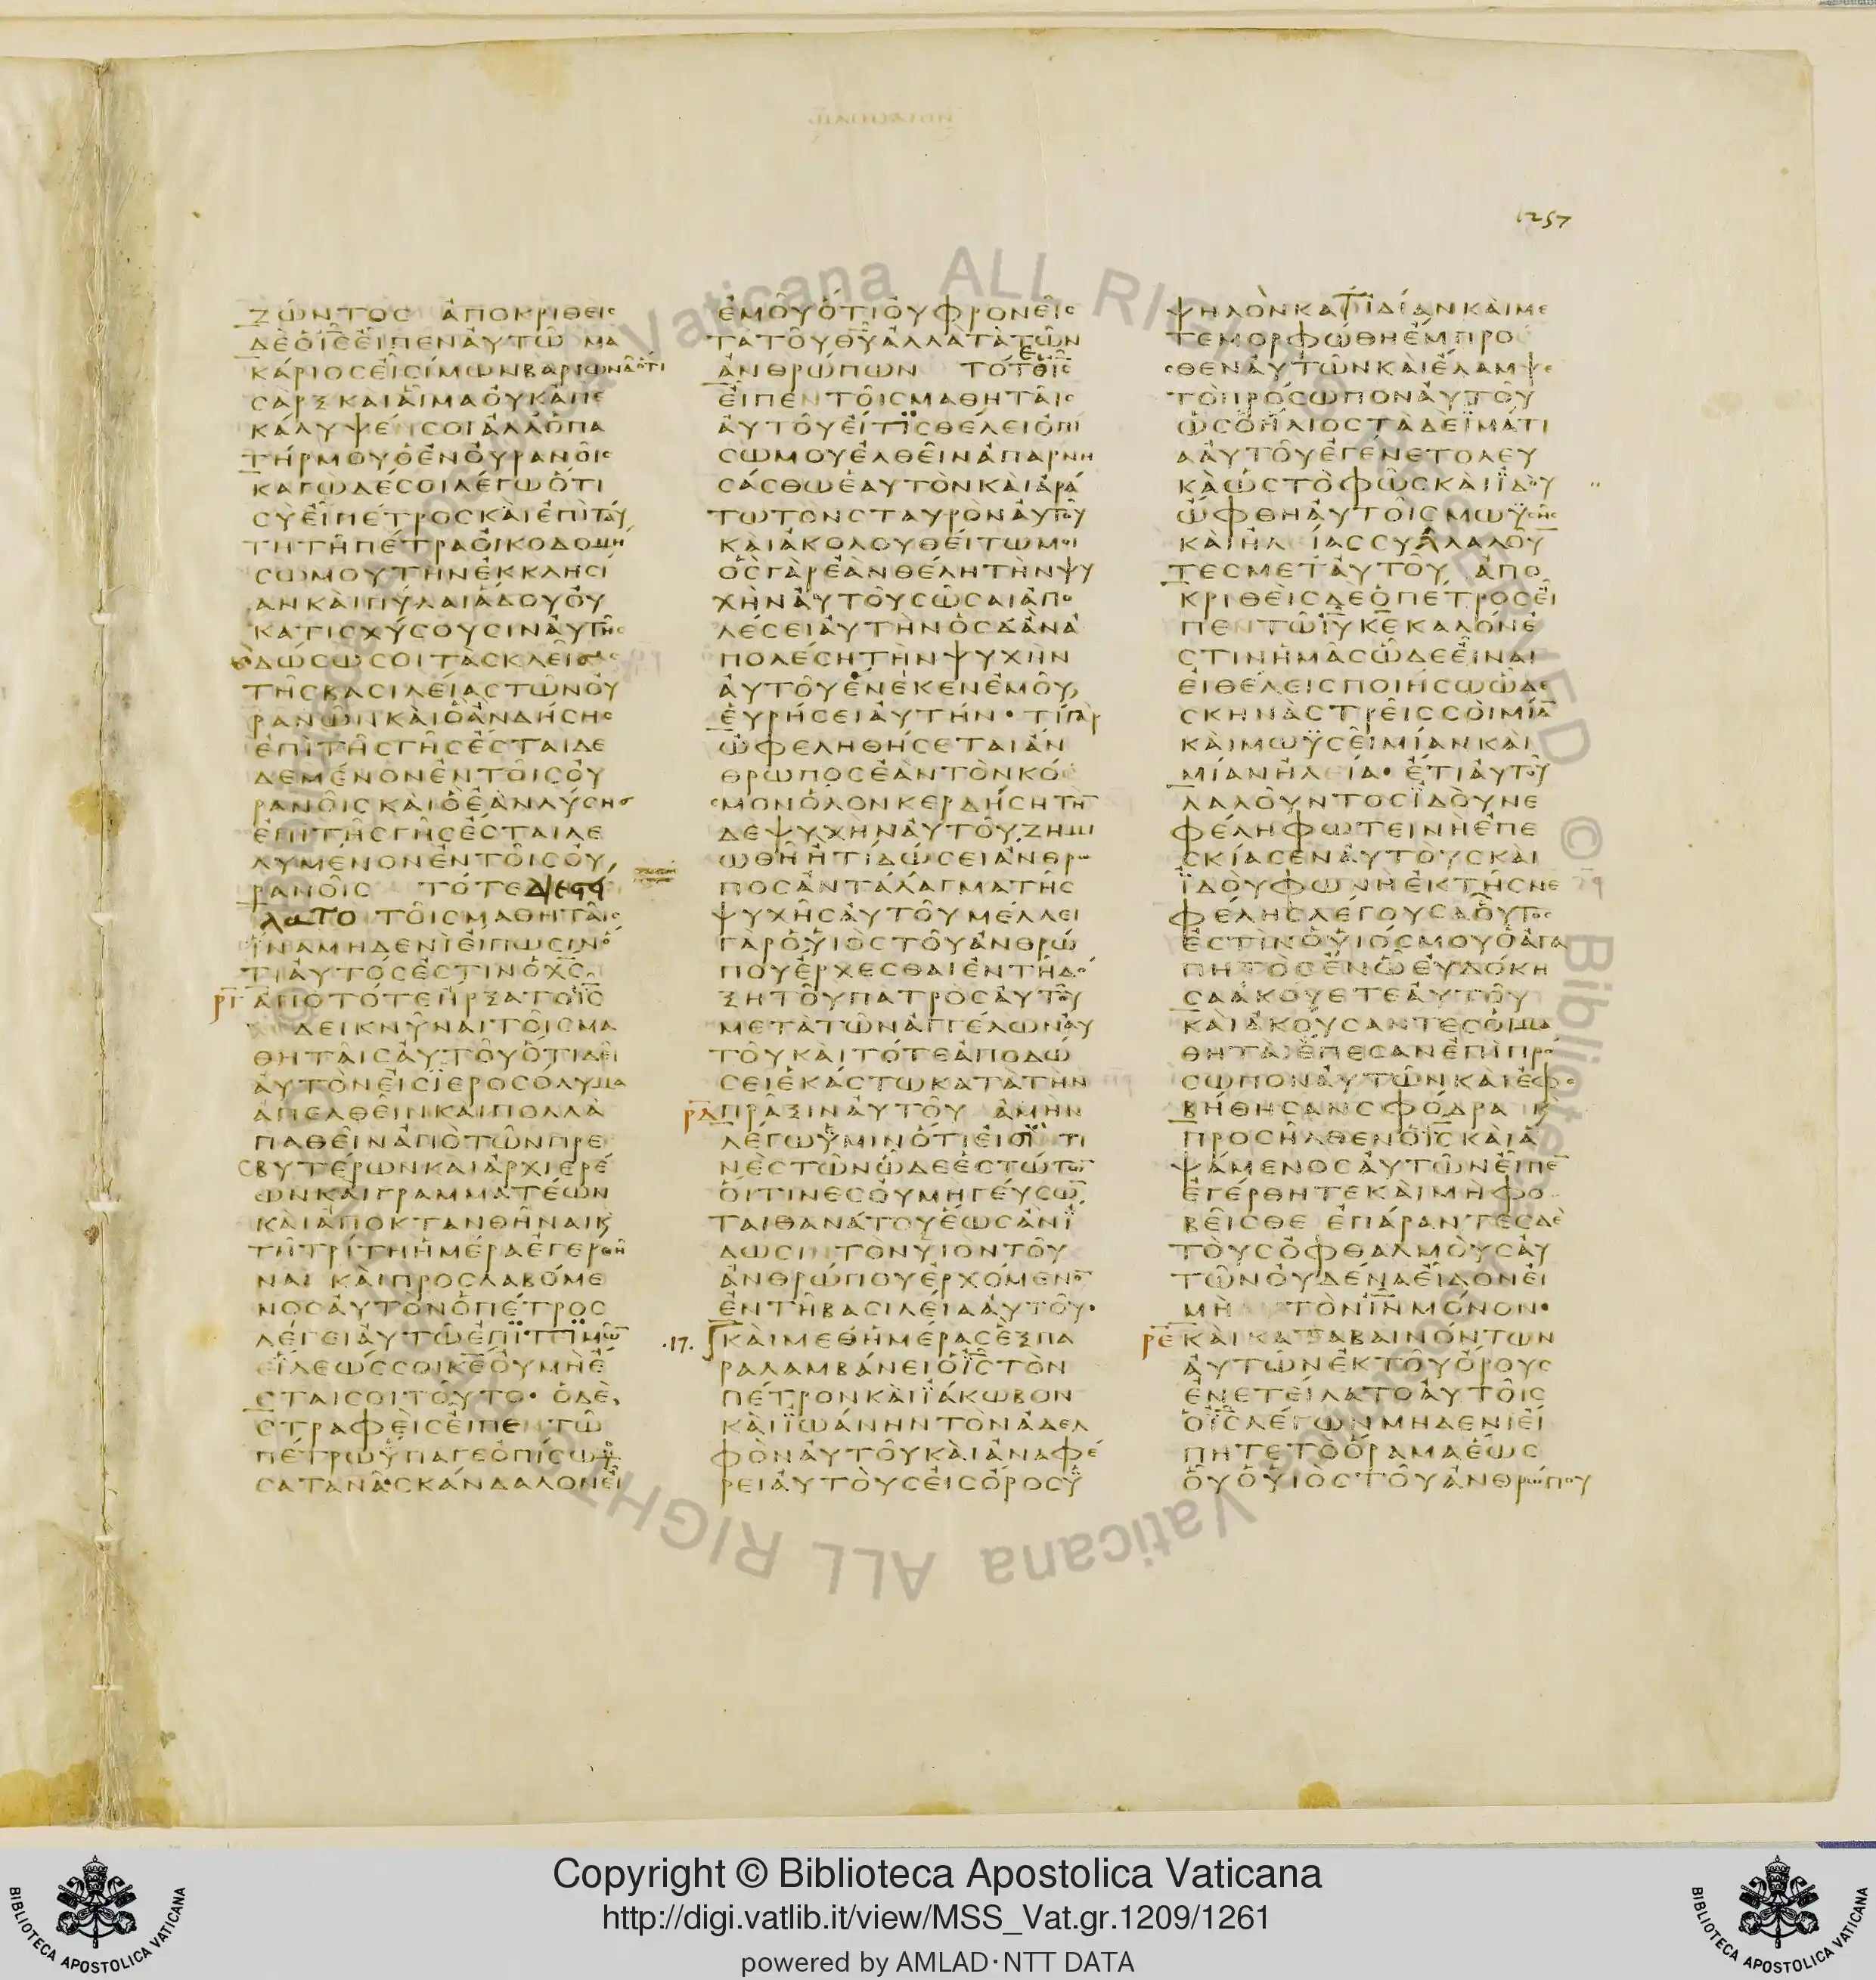 1257
ΖΩΝΤΟΣ ΑΠΟΚΡΙΘΕΙΣ
ΔΕ Ο ΙΣ ΕΙΠΕΝ ΑΥΤΩ ΜΑ
ΚΑΡΙΟΣ ΕΙ ΣΙΜΩΝ ΒΑΡΙΩΝΑ ΟΤΙ
ΣΑΡΞ ΚΑΙ ΑΙΜΑ ΟΥΚ ΑΠΕ
ΚΑΛΥΨΕΝ ΣΟΙ ΑΛΛ Ο ΠΑ
ΤΗΡ ΜΟΥ Ο ΕΝ ΟΥΡΑΝΟΙΣ
ΚΑΓΩ ΔΕ ΣΟΙ ΛΕΓΩ ΟΤΙ
ΣΥ ΕΙ ΠΕΤΡΟΣ ΚΑΙ ΕΠΙ ΤΑΥ
ΤΗ ΤΗ ΠΕΤΡΑ ΟΙΚΟΔΟΜΗ
ΣΩ ΜΟΥ ΤΗΝ ΕΚΚΛΗΣΙ
ΑΝ ΚΑΙ ΠΥΛΑΙ ΑΔΟΥ ΟΥ
ΚΑΤΙΣΧΥΣΟΥΣΙΝ ΑΥΤΗΣ
ΔΩΣΩ ΣΟΙ ΤΑΣ ΚΛΕΙΔΑΣ
ΤΗΣ ΒΑΣΙΛΕΙΑΣ ΤΩΝ ΟΥ
ΡΑΝΩΝ ΚΑΙ Ο ΑΝ ΔΗΣΗΣ
ΕΠΙ ΤΗΣ ΓΗΣ ΕΣΤΑΙ ΔΕ
ΔΕΜΕΝΟΝ ΕΝ ΤΟΙΣ ΟΥ
ΡΑΝΟΙΣ ΚΑΙ Ο ΕΑΝ ΛΥΣΗΣ
ΕΠΙ ΤΗΣ ΓΗΣ ΕΣΤΑΙ ΛΕ
ΛΥΜΕΝΟΝ ΕΝ ΤΟΙΣ ΟΥ
ΡΑΝΟΙΣ ΤΟΤΕ ΔΙΕΣΤΕΙ
ΛΑΤΟ ΤΟΙΣ ΜΑΘΗΤΑΙΣ
ΙΝΑ ΜΗΔΕΝΙ ΕΙΠΩΣΙΝ Ο
ΤΙ ΑΥΤΟΣ ΕΣΤΙΝ Ο ΧΣ
ΡΓ ΑΠΟ ΤΟΤΕ ΗΡΞΑΤΟ ΙΣ
ΔΕΙΚΝΥΝΑΙ ΤΟΙΣ ΜΑ
ΘΗΤΑΙΣ ΑΥΤΟΥ ΟΤΙ ΔΕΙ
ΑΥΤΟΝ ΕΙΣ ΙΕΡΟΣΟΛΥΜΑ
ΑΠΕΛΘΕΙΝ ΚΑΙ ΠΟΛΛΑ
ΠΑΘΕΙΝ ΑΠΟ ΤΩΝ ΠΡΕ
ΣΒΥΤΕΡΩΝ ΚΑΙ ΑΡΧΙΕΡΕ
ΩΝ ΚΑΙ ΓΡΑΜΜΑΤΕΩΝ
ΚΑΙ ΑΠΟΚΤΑΝΘΗΝΑΙ Κ
ΤΗ ΤΡΙΤΗ ΗΜΕΡΑ ΕΓΕΡΘΗ
ΝΑΙ ΚΑΙ ΠΡΟΣΛΑΒΟΜΕ
ΝΟΣ ΑΥΤΟΝ Ο ΠΕΤΡΟΣ
ΛΕΓΕΙ ΑΥΤΩ ΕΠΙΤΙΜΩ
ΕΙΛΕΩΣ ΣΟΙ ΚΕ ΟΥ ΜΗ Ε
ΣΤΑΙ ΣΟΙ ΤΟΥΤΟ· Ο ΔΕ
ΣΤΡΑΦΕΙΣ ΕΙΠΕΝ ΤΩ
ΠΕΤΡΩ ΥΠΑΓΕ ΟΠΙΣΩ ΜΟΥ
ΣΑΤΑΝΑ ΣΚΑΝΔΑΛΟΝ ΕΙ
ΕΜΟΥ ΟΤΙ ΟΥ ΦΡΟΝΕΙΣ
ΤΑ ΤΟΥ ΘΥ ΑΛΛΑ ΤΑ ΤΩΝ
ΑΝΘΡΩΠΩΝ ΤΟΤΕ Ο ΙΣ
ΕΙΠΕΝ ΤΟΙΣ ΜΑΘΗΤΑΙΣ
ΑΥΤΟΥ ΕΙ ΤΙΣ ΘΕΛΕΙ ΟΠΙ
ΣΩ ΜΟΥ ΕΛΘΕΙΝ ΑΠΑΡΝΗ
ΣΑΣΘΩ ΕΑΥΤΟΝ ΚΑΙ ΑΡΑ
ΤΩ ΤΟΝ ΣΤΑΥΡΟΝ ΑΥΤΟΥ
ΚΑΙ ΑΚΟΛΟΥΘΕΙΤΩ ΜΟΙ
ΟΣ ΓΑΡ ΕΑΝ ΘΕΛΗ ΤΗΝ ΨΥ
ΧΗΝ ΑΥΤΟΥ ΣΩΣΑΙ ΑΠΟ
ΛΕΣΕΙ ΑΥΤΗΝ ΟΣ Δ ΑΝ Α
ΠΟΛΕΣΗ ΤΗΝ ΨΥΧΗΝ
ΑΥΤΟΥ ΕΝΕΚΕΝ ΕΜΟΥ
ΕΥΡΗΣΕΙ ΑΥΤΗΝ· ΤΙ ΓΑΡ
ΩΦΕΛΗΘΗΣΕΤΑΙ ΑΝ
ΘΡΩΠΟΣ ΕΑΝ ΤΟΝ ΚΟ
ΣΜΟΝ ΟΛΟΝ ΚΕΡΔΗΣΗ ΤΗΝ
ΔΕ ΨΥΧΗΝ ΑΥΤΟΥ ΖΗΜΙ
ΩΘΗ Η ΤΙ ΔΩΣΕΙ ΑΝΘΡΩ
ΠΟΣ ΑΝΤΑΛΑΓΜΑ ΤΗΣ
ΨΥΧΗΣ ΑΥΤΟΥ ΜΕΛΛΕΙ
ΓΑΡ Ο ΥΙΟΣ ΤΟΥ ΑΝΘΡΩ
ΠΟΥ ΕΡΧΕΣΘΑΙ ΕΝ ΤΗ ΔΟ
ΞΗ ΤΟΥ ΠΑΤΡΟΣ ΑΥΤΟΥ
ΜΕΤΑ ΤΩΝ ΑΓΓΕΛΩΝ ΑΥ
ΤΟΥ ΚΑΙ ΤΟΤΕ ΑΠΟΔΩ
ΣΕΙ ΕΚΑΣΤΩ ΚΑΤΑ ΤΗΝ
ΡΔ ΠΡΑΞΙΝ ΑΥΤΟΥ ΑΜΗΝ
ΛΕΓΩ ΥΜΙΝ ΟΤΙ ΕΙΣΙΝ ΤΙ
ΝΕΣ ΤΩΝ ΩΔΕ ΕΣΤΩΤΩΝ
ΟΙΤΙΝΕΣ ΟΥ ΜΗ ΓΕΥΣΩΝ
ΤΑΙ ΘΑΝΑΤΟΥ ΕΩΣ ΑΝ Ι
ΔΩΣΙΝ ΤΟΝ ΥΙΟΝ ΤΟΥ
ΑΝΘΡΩΠΟΥ ΕΡΧΟΜΕΝΟΝ
ΕΝ ΤΗ ΒΑΣΙΛΕΙΑ ΑΥΤΟΥ·
.17. ΚΑΙ ΜΕΘ ΗΜΕΡΑΣ ΕΞ ΠΑ
ΡΑΛΑΜΒΑΝΕΙ Ο ΙΣ ΤΟΝ
ΠΕΤΡΟΝ ΚΑΙ ΙΑΚΩΒΟΝ
ΚΑΙ ΙΩΑΝΗΝ ΤΟΝ ΑΔΕΛ
ΦΟΝ ΑΥΤΟΥ ΚΑΙ ΑΝΑΦΕ
ΡΕΙ ΑΥΤΟΥΣ ΕΙΣ ΟΡΟΣ Υ
ΨΗΛΟΝ ΚΑΤ ΙΔΙΑΝ ΚΑΙ ΜΕ
ΤΕΜΟΡΦΩΘΗ ΕΜΠΡΟ
ΣΘΕΝ ΑΥΤΩΝ ΚΑΙ ΕΛΑΜΨΕ
ΤΟ ΠΡΟΣΩΠΟΝ ΑΥΤΟΥ
ΩΣ Ο ΗΛΙΟΣ ΤΑ ΔΕ ΙΜΑΤΙ
Α ΑΥΤΟΥ ΕΓΕΝΕΤΟ ΛΕΥ
ΚΑ ΩΣ ΤΟ ΦΩΣ ΚΑΙ ΙΔΟΥ
ΩΦΘΗ ΑΥΤΟΙΣ ΜΩΥΣΗΣ
ΚΑΙ ΗΛΙΑΣ ΣΥΛΛΑΛΟΥ
ΤΕΣ ΜΕΤ ΑΥΤΟΥ ΑΠΟ
ΚΡΙΘΕΙΣ ΔΕ Ο ΠΕΤΡΟΣ ΕΙ
ΠΕΝ ΤΩ ΙΥ ΚΕ ΚΑΛΟΝ Ε
ΣΤΙΝ ΗΜΑΣ ΩΔΕ ΕΙΝΑΙ
ΕΙ ΘΕΛΕΙΣ ΠΟΙΗΣΩ ΩΔΕ
ΣΚΗΝΑΣ ΤΡΕΙΣ ΣΟΙ ΜΙΑΝ
ΚΑΙ ΜΩΥΣΕΙ ΜΙΑΝ ΚΑΙ
ΜΙΑΝ ΗΛΕΙΑ· ΕΤΙ ΑΥΤΟΥ
ΛΑΛΟΥΝΤΟΣ ΙΔΟΥ ΝΕ
ΦΕΛΗ ΦΩΤΕΙΝΗ ΕΠΕ
ΣΚΙΑΣΕΝ ΑΥΤΟΥΣ ΚΑΙ
ΙΔΟΥ ΦΩΝΗ ΕΚ ΤΗΣ ΝΕ
ΦΕΛΗΣ ΛΕΓΟΥΣΑ ΟΥΤΟΣ
ΕΣΤΙΝ Ο ΥΙΟΣ ΜΟΥ Ο ΑΓΑ
ΠΗΤΟΣ ΕΝ Ω ΕΥΔΟΚΗ
ΣΑ ΑΚΟΥΕΤΕ ΑΥΤΟΥ
ΚΑΙ ΑΚΟΥΣΑΝΤΕΣ ΟΙ ΜΑ
ΘΗΤΑΙ ΕΠΕΣΑΝ ΕΠΙ ΠΡΟ
ΣΩΠΟΝ ΑΥΤΩΝ ΚΑΙ ΕΦΟ
ΒΗΘΗΣΑΝ ΣΦΟΔΡΑ Κ
ΠΡΟΣΗΛΘΕΝ Ο ΙΣ ΚΑΙ Α
ΨΑΜΕΝΟΣ ΑΥΤΩΝ ΕΙΠΕ
ΕΓΕΡΘΗΤΕ ΚΑΙ ΜΗ ΦΟ
ΒΕΙΣΘΕ ΕΠΑΡΑΝΤΕΣ ΔΕ
ΤΟΥΣ ΟΦΘΑΛΜΟΥΣ ΑΥ
ΤΩΝ ΟΥΔΕΝΑ ΕΙΔΟΝ ΕΙ
ΜΗ ΤΟΝ ΙΝ ΜΟΝΟΝ·
ΡΕ ΚΑΙ ΚΑΤΑΒΑΙΝΟΝΤΩΝ
ΑΥΤΩΝ ΕΚ ΤΟΥ ΟΡΟΥΣ
ΕΝΕΤΕΙΛΑΤΟ ΑΥΤΟΙΣ
Ο ΙΣ ΛΕΓΩΝ ΜΗΔΕΝΙ ΕΙ
ΠΗΤΕ ΤΟ ΟΡΑΜΑ ΕΩΣ
ΟΥ Ο ΥΙΟΣ ΤΟΥ ΑΝΘΡΩΠΟΥ
Copyright © Biblioteca Apostolica Vaticana
http://digi.vatlib.it/view/MSS_Vat.gr.1209/1261
powered by AMLAD·NTT DATA
BIBLIOTECA APOSTOLICA VATICANA
BIBLIOTECA APOSTOLICA VATICANA